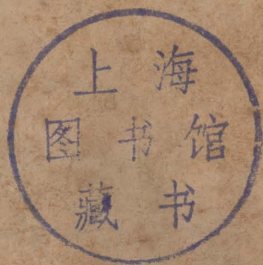 上海
图书馆
藏书